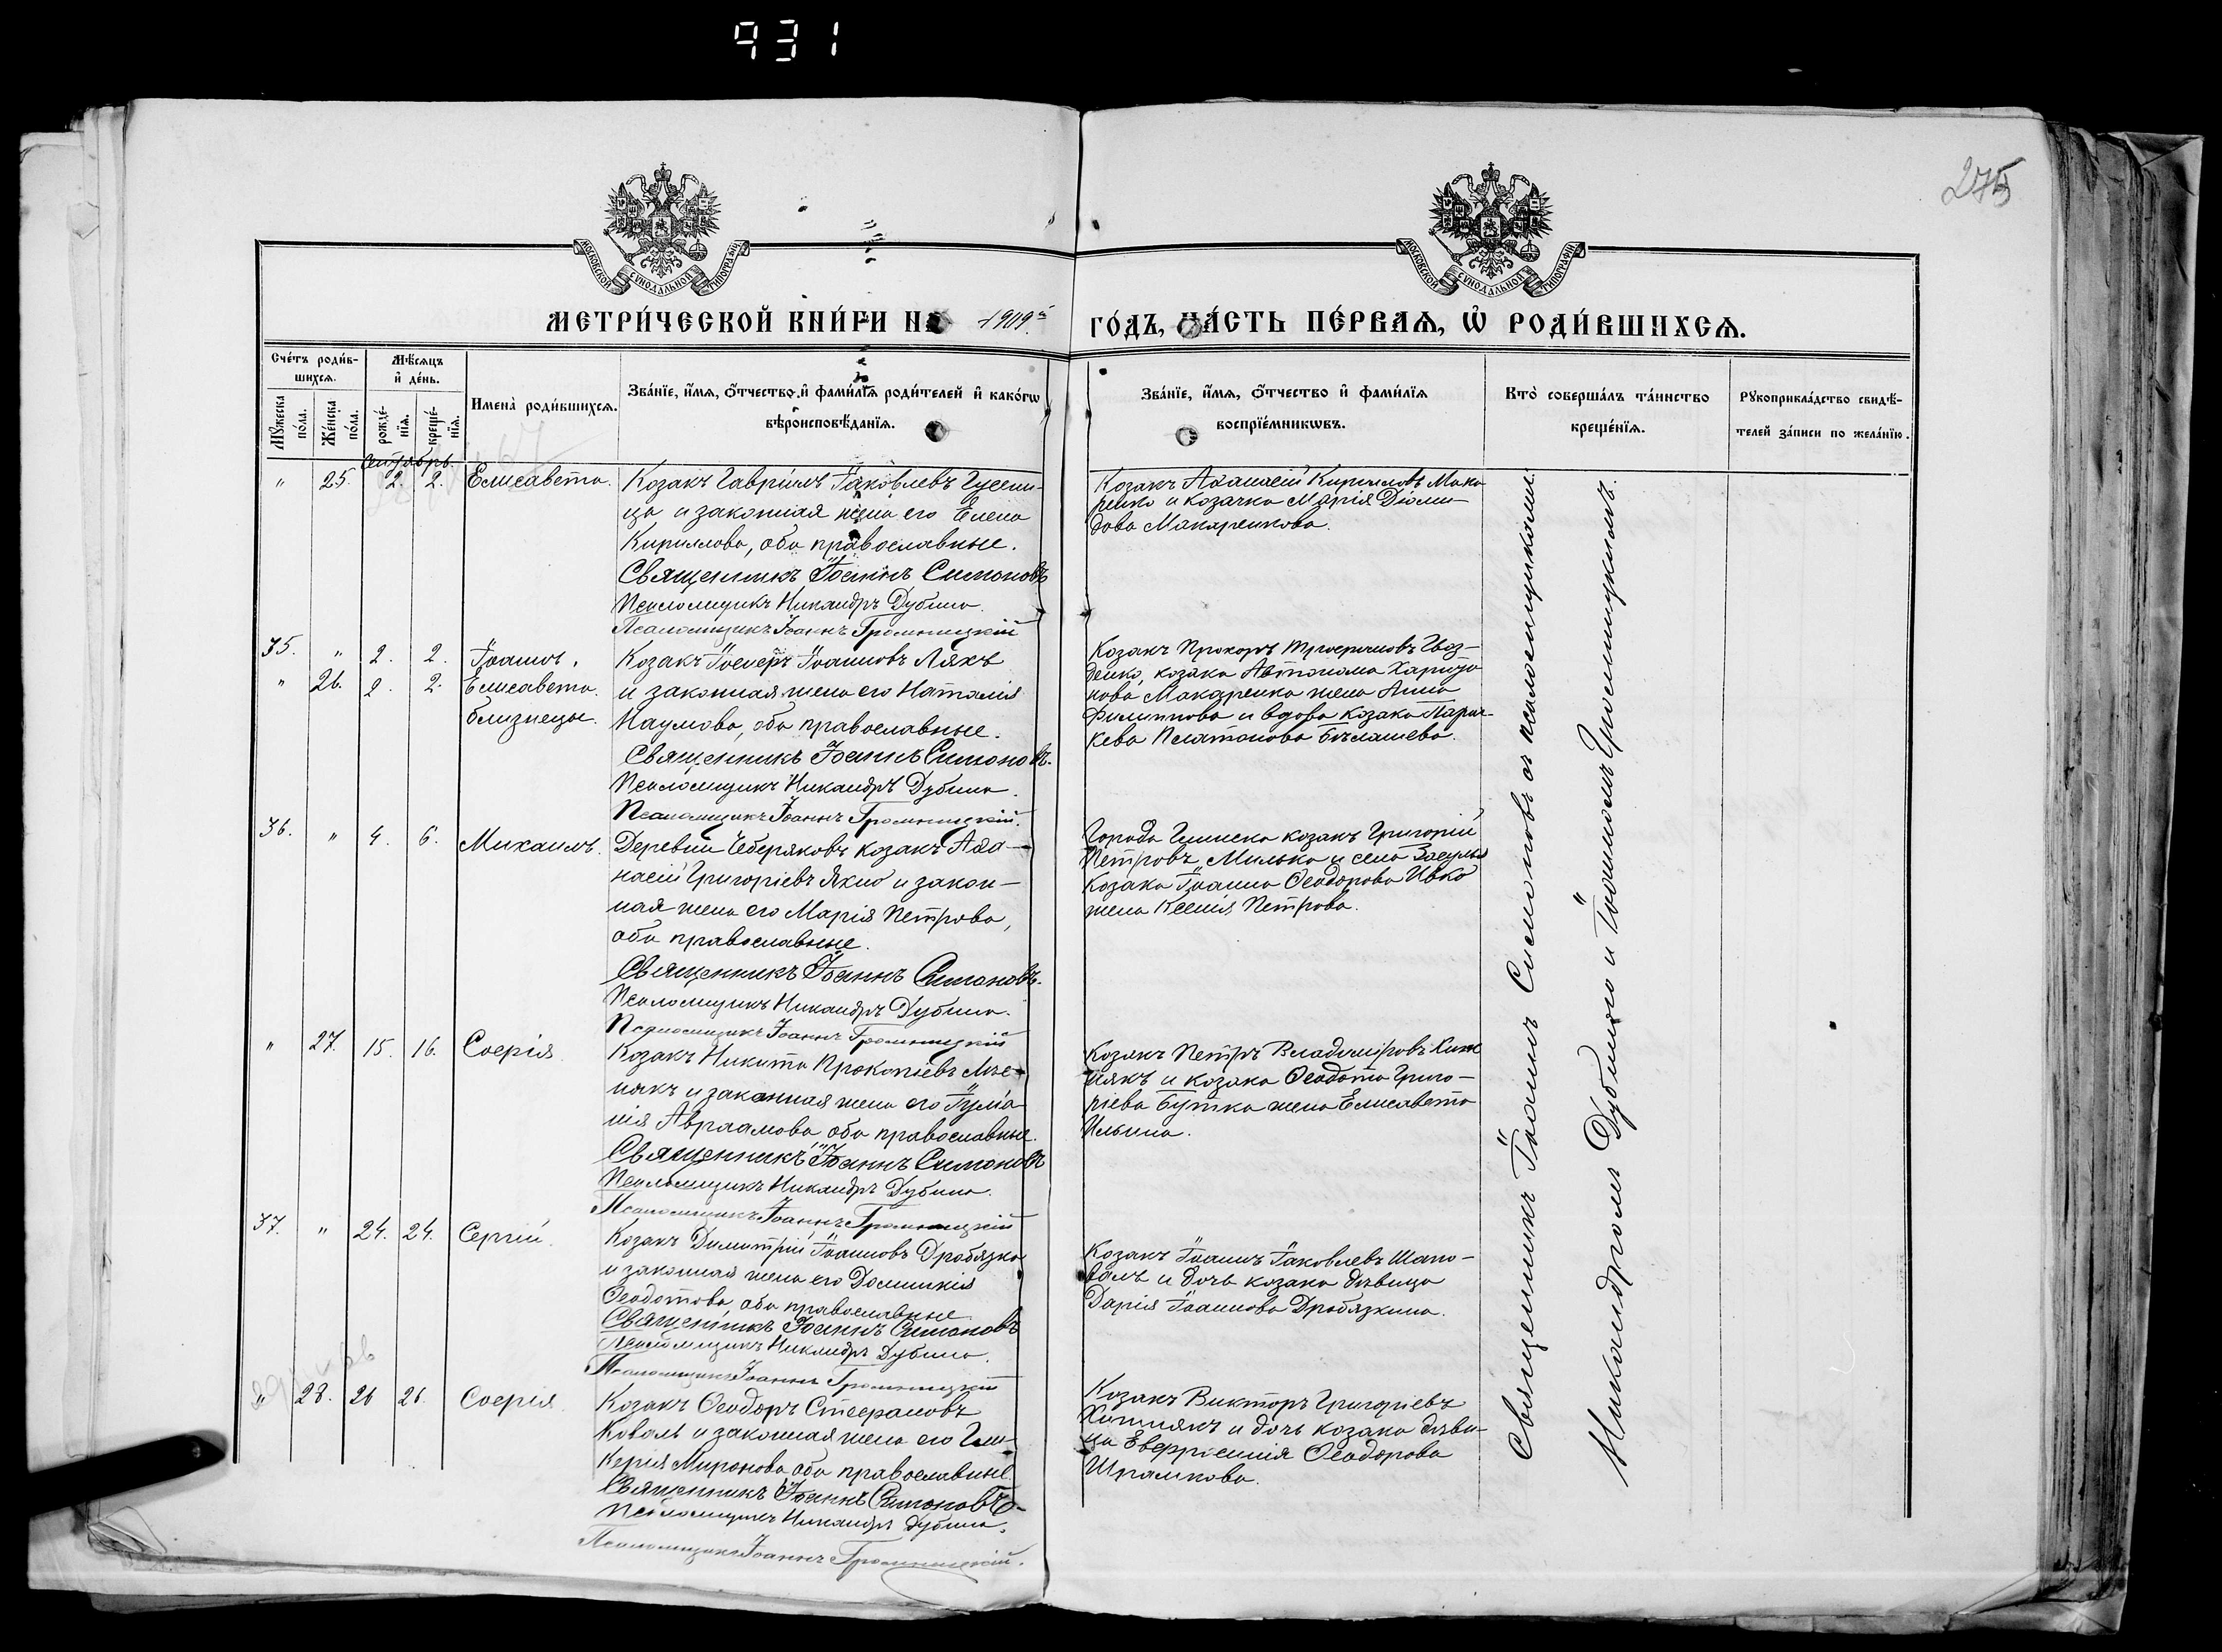 931
275
МОСКОВСКОЙ СУНОДАЛЬНОЙ ТИПОГРАФІИ
МОСКОВСКОЙ СУНОДАЛЬНОЙ ТИПОГРАФІИ
МЕТРИ́ЧЕСКОЙ КНИ́ГИ НА 1909й
ГО́ДЪ, ЧА́СТЬ ПЕ́РВАѦ, Ѡ҆ РОДИ́ВШИХСѦ.
Сче́тъ роди́в-
шихсѧ.
Мꙋ́жеска по́ла.
Же́нска по́ла.
Мѣ́сѧцъ
и҆ де́нь.
рожде́-
нїѧ.
креще́-
нїѧ.
Имена̀ роди́вшихсѧ.
Зва́нїе, и҆́мѧ, ѻ҆́тчество, и҆ фами́лїѧ роди́телей и҆ како́гѡ
вѣроисповѣ́данїѧ.
Зва́нїе, и҆́мѧ, ѻ҆́тчество и҆ фами́лїѧ
воспрїе́мникѡвъ.
Кто̀ соверша́лъ та́инство
креще́нїѧ.
Рꙋкоприкла́дство свидѣ́-
телей за́писи по жела́нїю.
Сентябрь.
" 25. 2. 2. Елисавета. Козакъ Гавріилъ Іаковлевъ Гусени-
ца и законная жена его Елена
Кириллова, оба православные.
Священникъ Іоаннъ Симоновъ
Псаломщикъ Никандръ Дубина.
Псаломщикъ Іоаннъ Громницкій
Козакъ Аѳанасій Кирилловъ Мака
ренко и козачка Марія Діоми-
дова Макаренкова.
35. " 2. 2. Іоаннъ,
" 26. 2. 2. Елисавета.
близнецы.
Козакъ Іосифъ Іоанновъ Ляхъ
и законная жена его Наталія
Наумова, оба православные.
Священникъ Іоаннъ Симоновъ.
Псаломщикъ Никандръ Дубина.
Псаломщикъ Іоаннъ Громницкій.
Козакъ Прохоръ Трофимовъ Гвоз-
денко, козака Автонома Харито
нова Макаренка жена Анна
Филиппова и вдова козака Парас-
кева Платонова Бѣлашева.
36. " 4. 6. Михаилъ. Деревни Чеберяковъ козакъ Аѳа-
насій Григоріевъ Яхно и закон-
ная жена его Марія Петрова,
оба православные.
Священникъ Іоаннъ Симоновъ.
Псаломщикъ Никандръ Дубина.
Псаломщикъ Іоаннъ Громницкій
Города Глинска козакъ Григорій
Петровъ Милька и села Засулья
козака Іоанна Ѳеодорова Ивко
жена Ксенія Петрова.
" 27. 15. 16. Софія. Козакъ Никита Прокопіевъ
и законная жена его Іулiа
нія Авраамова оба православные.
Священникъ Іоаннъ Симоновъ
Псаломщикъ Никандръ Дубина.
Псаломщикъ Іоаннъ Громницкій
Козакъ Петръ Владиміровъ Хиж
някъ и козака Ѳеодота Григо-
ріева Бутка жена Елисавета
Ильина.
37. " 24. 24. Сергій. Козакъ Димитрій Іоанновъ Дробязко
и законная жена его Домникія
Ѳеодотова, оба православные
Священникъ Іоаннъ Симоновъ
Псаломщикъ Никандръ Дубина.
Псаломщикъ Іоаннъ Громницкій
Козакъ Іоаннъ Іаковлевъ Шапо-
валъ и дочь козака дѣвица
Дарія Іоаннова Дробязкина.
" 28. 26 26. Софія. Козакъ Ѳеодоръ Стефановъ
Коваль и законная жена его Гли-
керія Миронова оба православные.
Священникъ Іоаннъ Симоновъ
Псаломщикъ Никандръ Дубина.
Псаломщикъ Іоаннъ Громницкій.
Козакъ Викторъ Григоріевъ
Хижнякъ и дочь козака дѣви-
ца Евфросинія Ѳеодорова
Шрамкова.
Священникъ Іоаннъ Симоновъ съ псаломщиками:
Никандромъ Дубиною и Іоанномъ Громницкимъ.